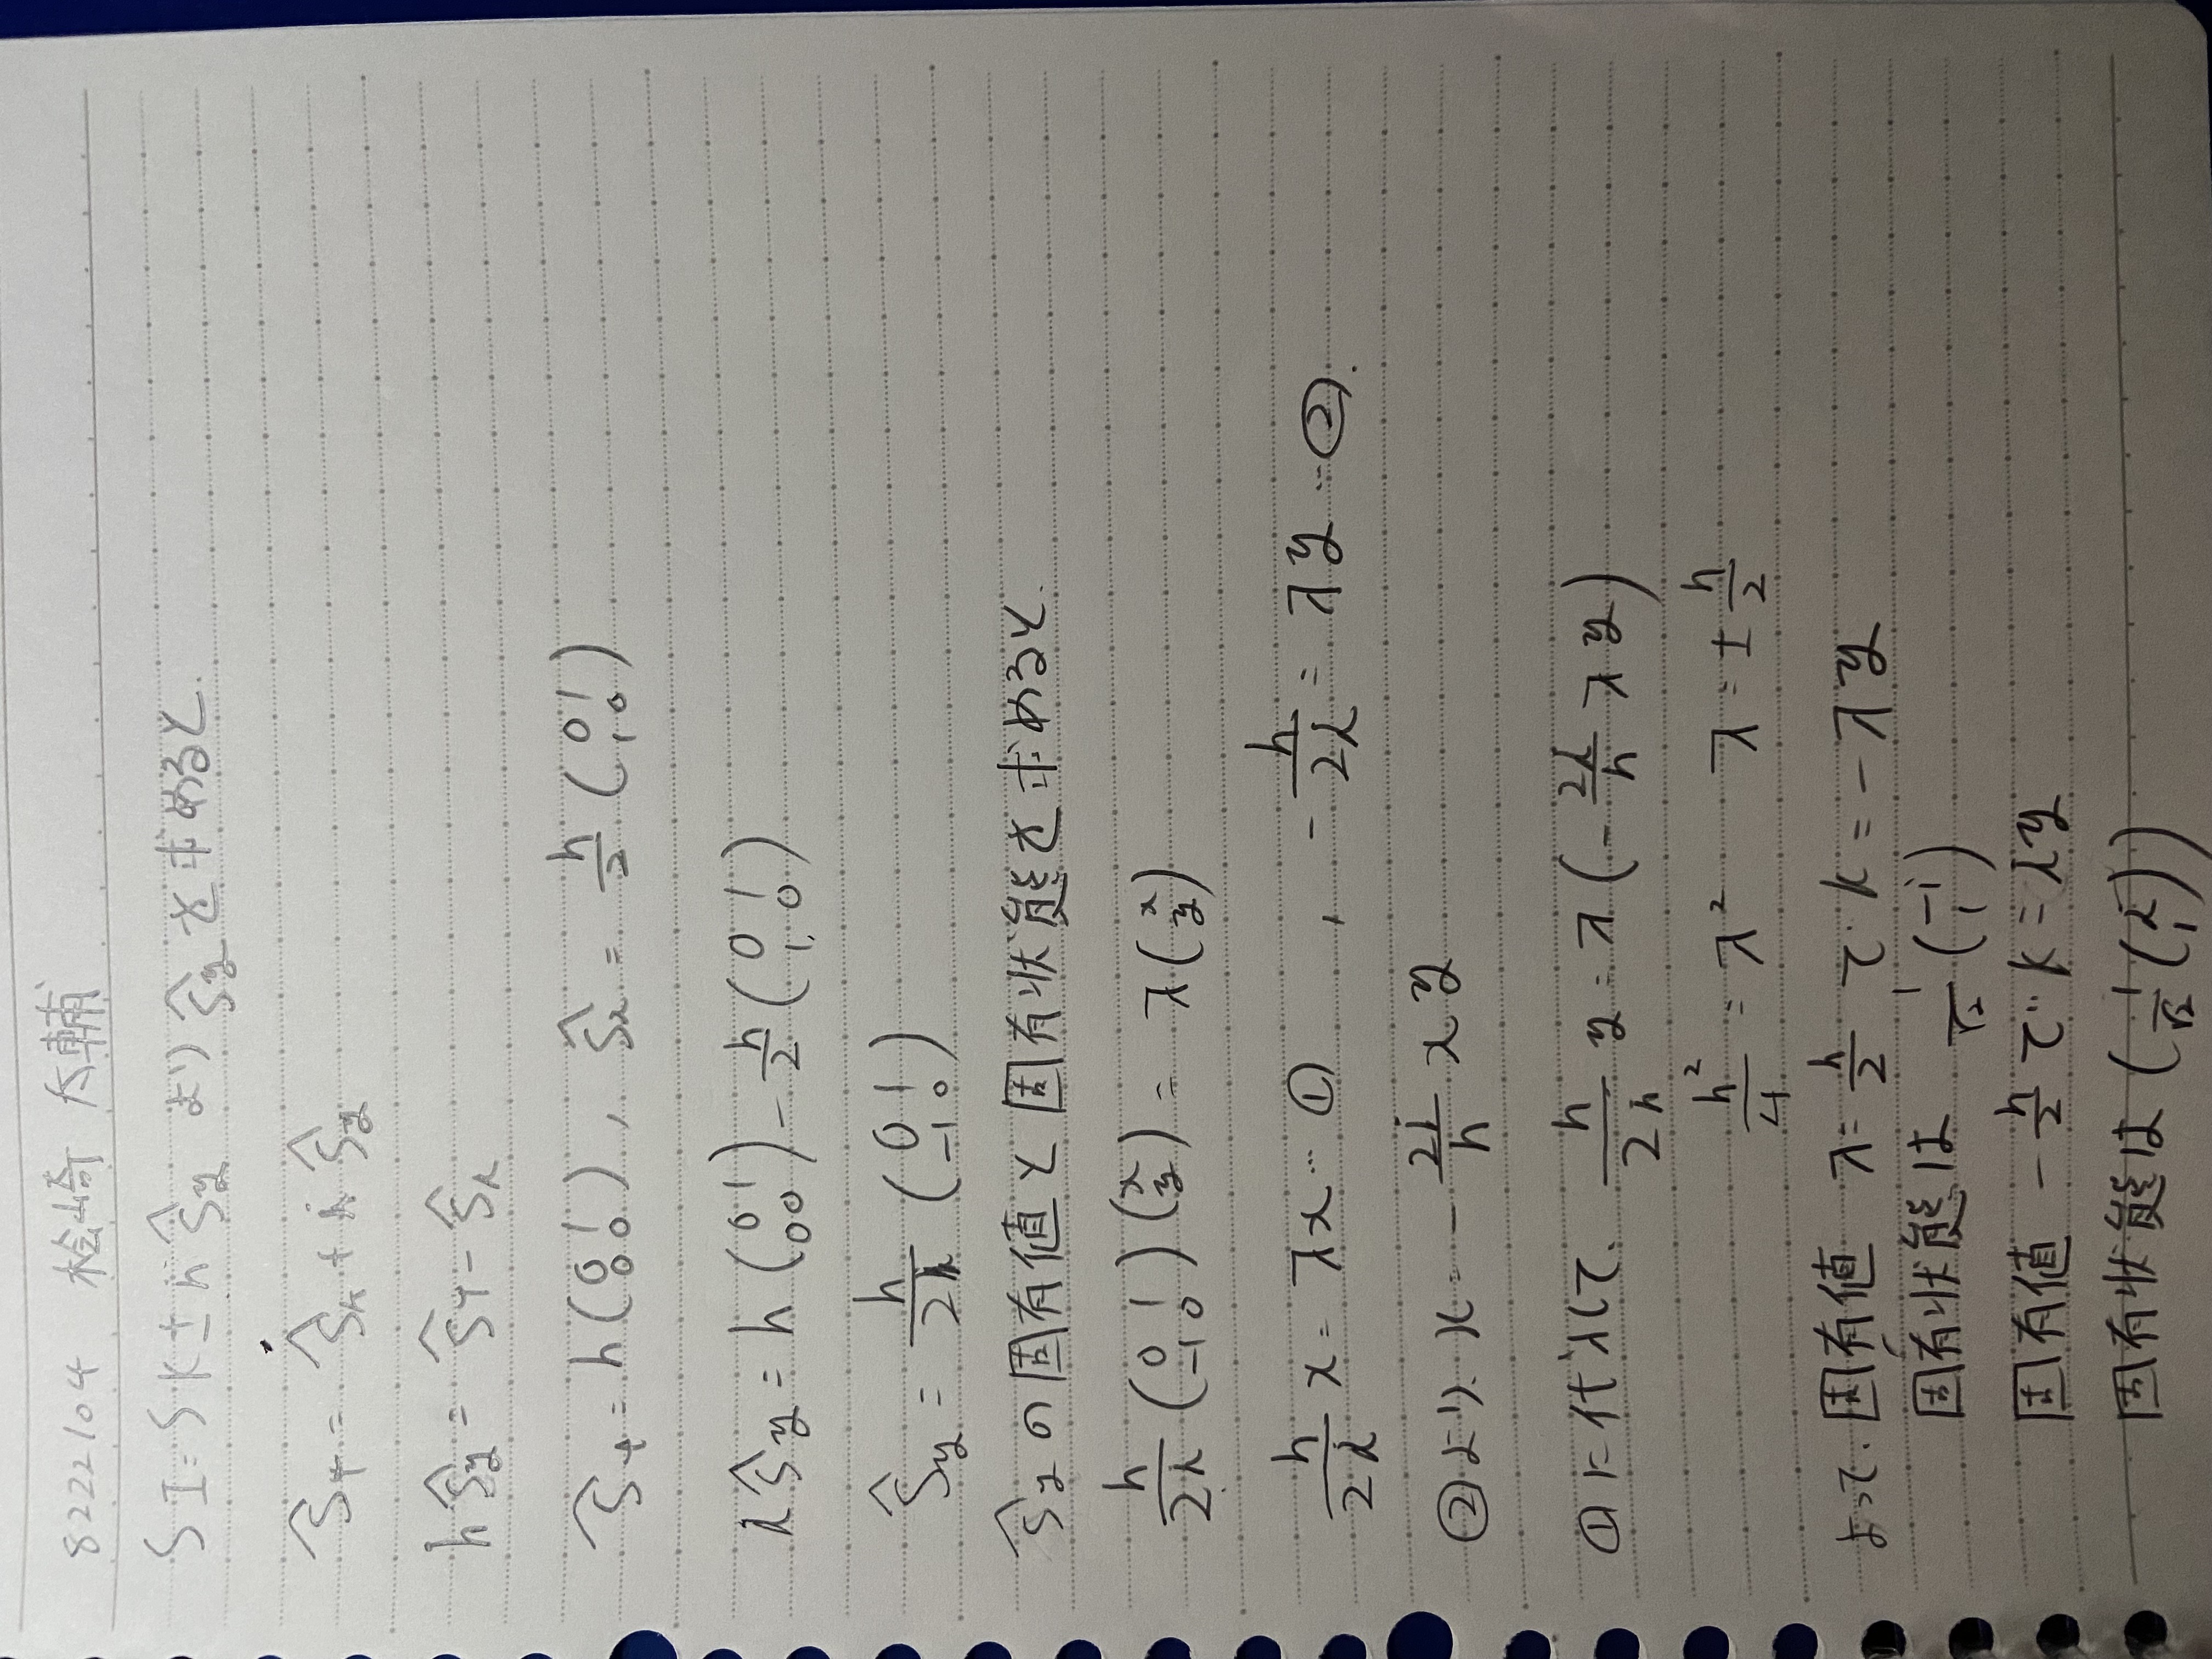 8222104 桧崎 大輔
S I = S x ± i Ŝy より Ŝy を求めると.
Ŝ+ = Ŝx + i Ŝy
i Ŝy = Ŝ+ - Ŝx
Ŝ+ = h (0 1 / 0 0) , Ŝx = h/2 (0 1 / 1 0)
i Ŝy = h (0 1 / 0 0) - h/2 (0 1 / 1 0)
Ŝy = h/2i (0 1 / -1 0)
Ŝyの固有値と固有状態を求めると.
h/2i (0 1 / -1 0) (x / y) = λ (x / y)
h/2i x = λx … ① , - h/2i = λy … ②.
②より. x = - 2i/h x y
①に代入して. h/2i y = λ (- 2i/h λ y)
h²/4 = λ² λ = ± h/2
よって. 固有値 λ = h/2 で x = -λy
固有状態は 1/√2 (-i / 1)
固有値 - h/2 で x = iy
固有状態は (1/√2 (i / 1))